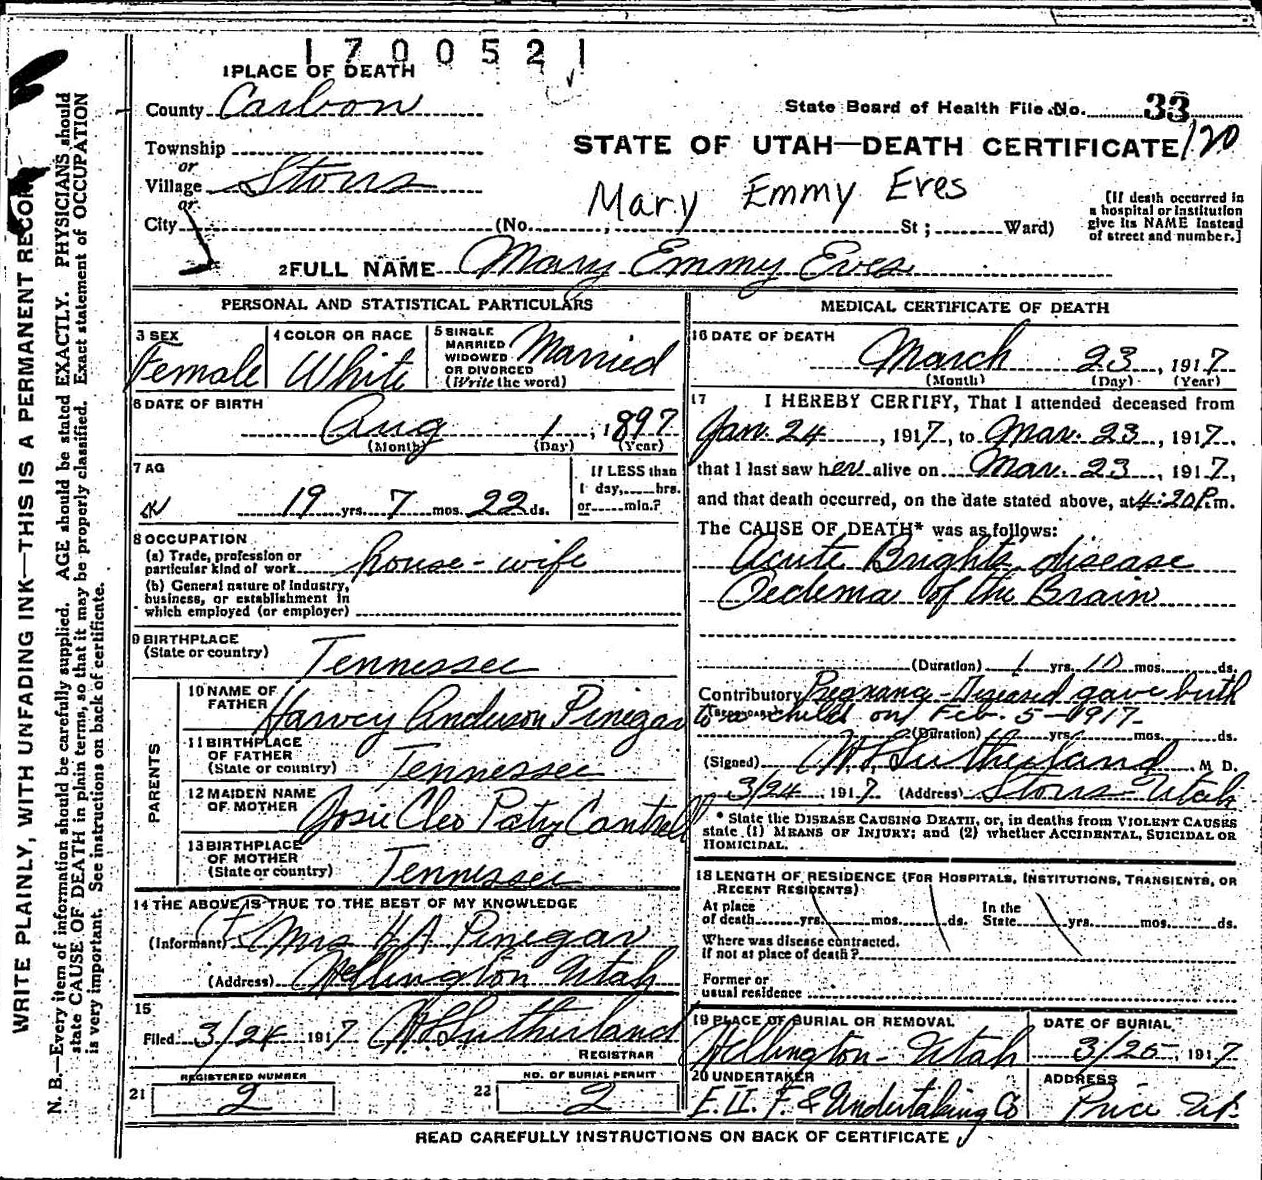 1700521
1 PLACE OF DEATH
County Carbon
State Board of Health File No. 33
Township
STATE OF UTAH—DEATH CERTIFICATE 120
or
Village Storrs
Mary Emmy Eves
or
City (No. ; St ; Ward)
[If death occurred in
a hospital or institution
give its NAME instead
of street and number.]
2 FULL NAME Mary Emmy Eves
PERSONAL AND STATISTICAL PARTICULARS
3 SEX
Female
4 COLOR OR RACE
White
5 SINGLE
MARRIED
WIDOWED
OR DIVORCED
(Write the word)
Married
6 DATE OF BIRTH
Aug 1, 1897
(Month) (Day) (Year)
7 AG
19 yrs. 7 mos. 22 ds.
If LESS than
1 day, hrs.
or min.?
8 OCCUPATION
(a) Trade, profession or
particular kind of work house-wife
(b) General nature of industry,
business, or establishment in
which employed (or employer)
9 BIRTHPLACE
(State or country) Tennessee
PARENTS
10 NAME OF
FATHER Harvey Anderson Pinegar
11 BIRTHPLACE
OF FATHER
(State or country) Tennessee
12 MAIDEN NAME
OF MOTHER Josie Cleo Paty Cantrell
13 BIRTHPLACE
OF MOTHER
(State or country) Tennessee
14 THE ABOVE IS TRUE TO THE BEST OF MY KNOWLEDGE
(Informant) Mrs H A Pinegar
(Address) Wellington Utah
15
Filed 3/24 1917 Sutherland
REGISTRAR
21 REGISTERED NUMBER
2
22 NO. OF BURIAL PERMIT
2
MEDICAL CERTIFICATE OF DEATH
16 DATE OF DEATH
March 23, 1917
(Month) (Day) (Year)
17 I HEREBY CERTIFY, That I attended deceased from
Jan. 24, 1917, to Mar. 23, 1917,
that I last saw her alive on Mar. 23, 1917,
and that death occurred, on the date stated above, at 4:20 P.m.
The CAUSE OF DEATH* was as follows:
Acute Brights disease
Oedema of the Brain
(Duration) 1 yrs. 10 mos. ds.
Contributory Pregnancy - Diseased gave birth
to a child on Feb. 5-1917-
(Duration) yrs. mos. ds.
(Signed) Sutherland M D.
3/24 1917 (Address) Storrs Utah
* State the DISEASE CAUSING DEATH, or, in deaths from VIOLENT CAUSES
state (1) MEANS OF INJURY; and (2) whether ACCIDENTAL, SUICIDAL OR
HOMICIDAL.
18 LENGTH OF RESIDENCE (FOR HOSPITALS, INSTITUTIONS, TRANSIENTS, OR
RECENT RESIDENTS)
At place
of death yrs. mos. ds.
In the
State yrs. mos. ds.
Where was disease contracted.
if not at place of death?
Former or
usual residence
19 PLACE OF BURIAL OR REMOVAL
Wellington - Utah
DATE OF BURIAL
3/25, 1917
20 UNDERTAKER
Undertaking Co
ADDRESS
Price Ut.
READ CAREFULLY INSTRUCTIONS ON BACK OF CERTIFICATE
WRITE PLAINLY, WITH UNFADING INK—THIS IS A PERMANENT RECORD
N. B.—Every item of information should be carefully supplied. AGE should be stated EXACTLY. PHYSICIANS should
state CAUSE OF DEATH in plain terms, so that it may be properly classified. Exact statement of OCCUPATION
is very important. See instructions on back of certificate.